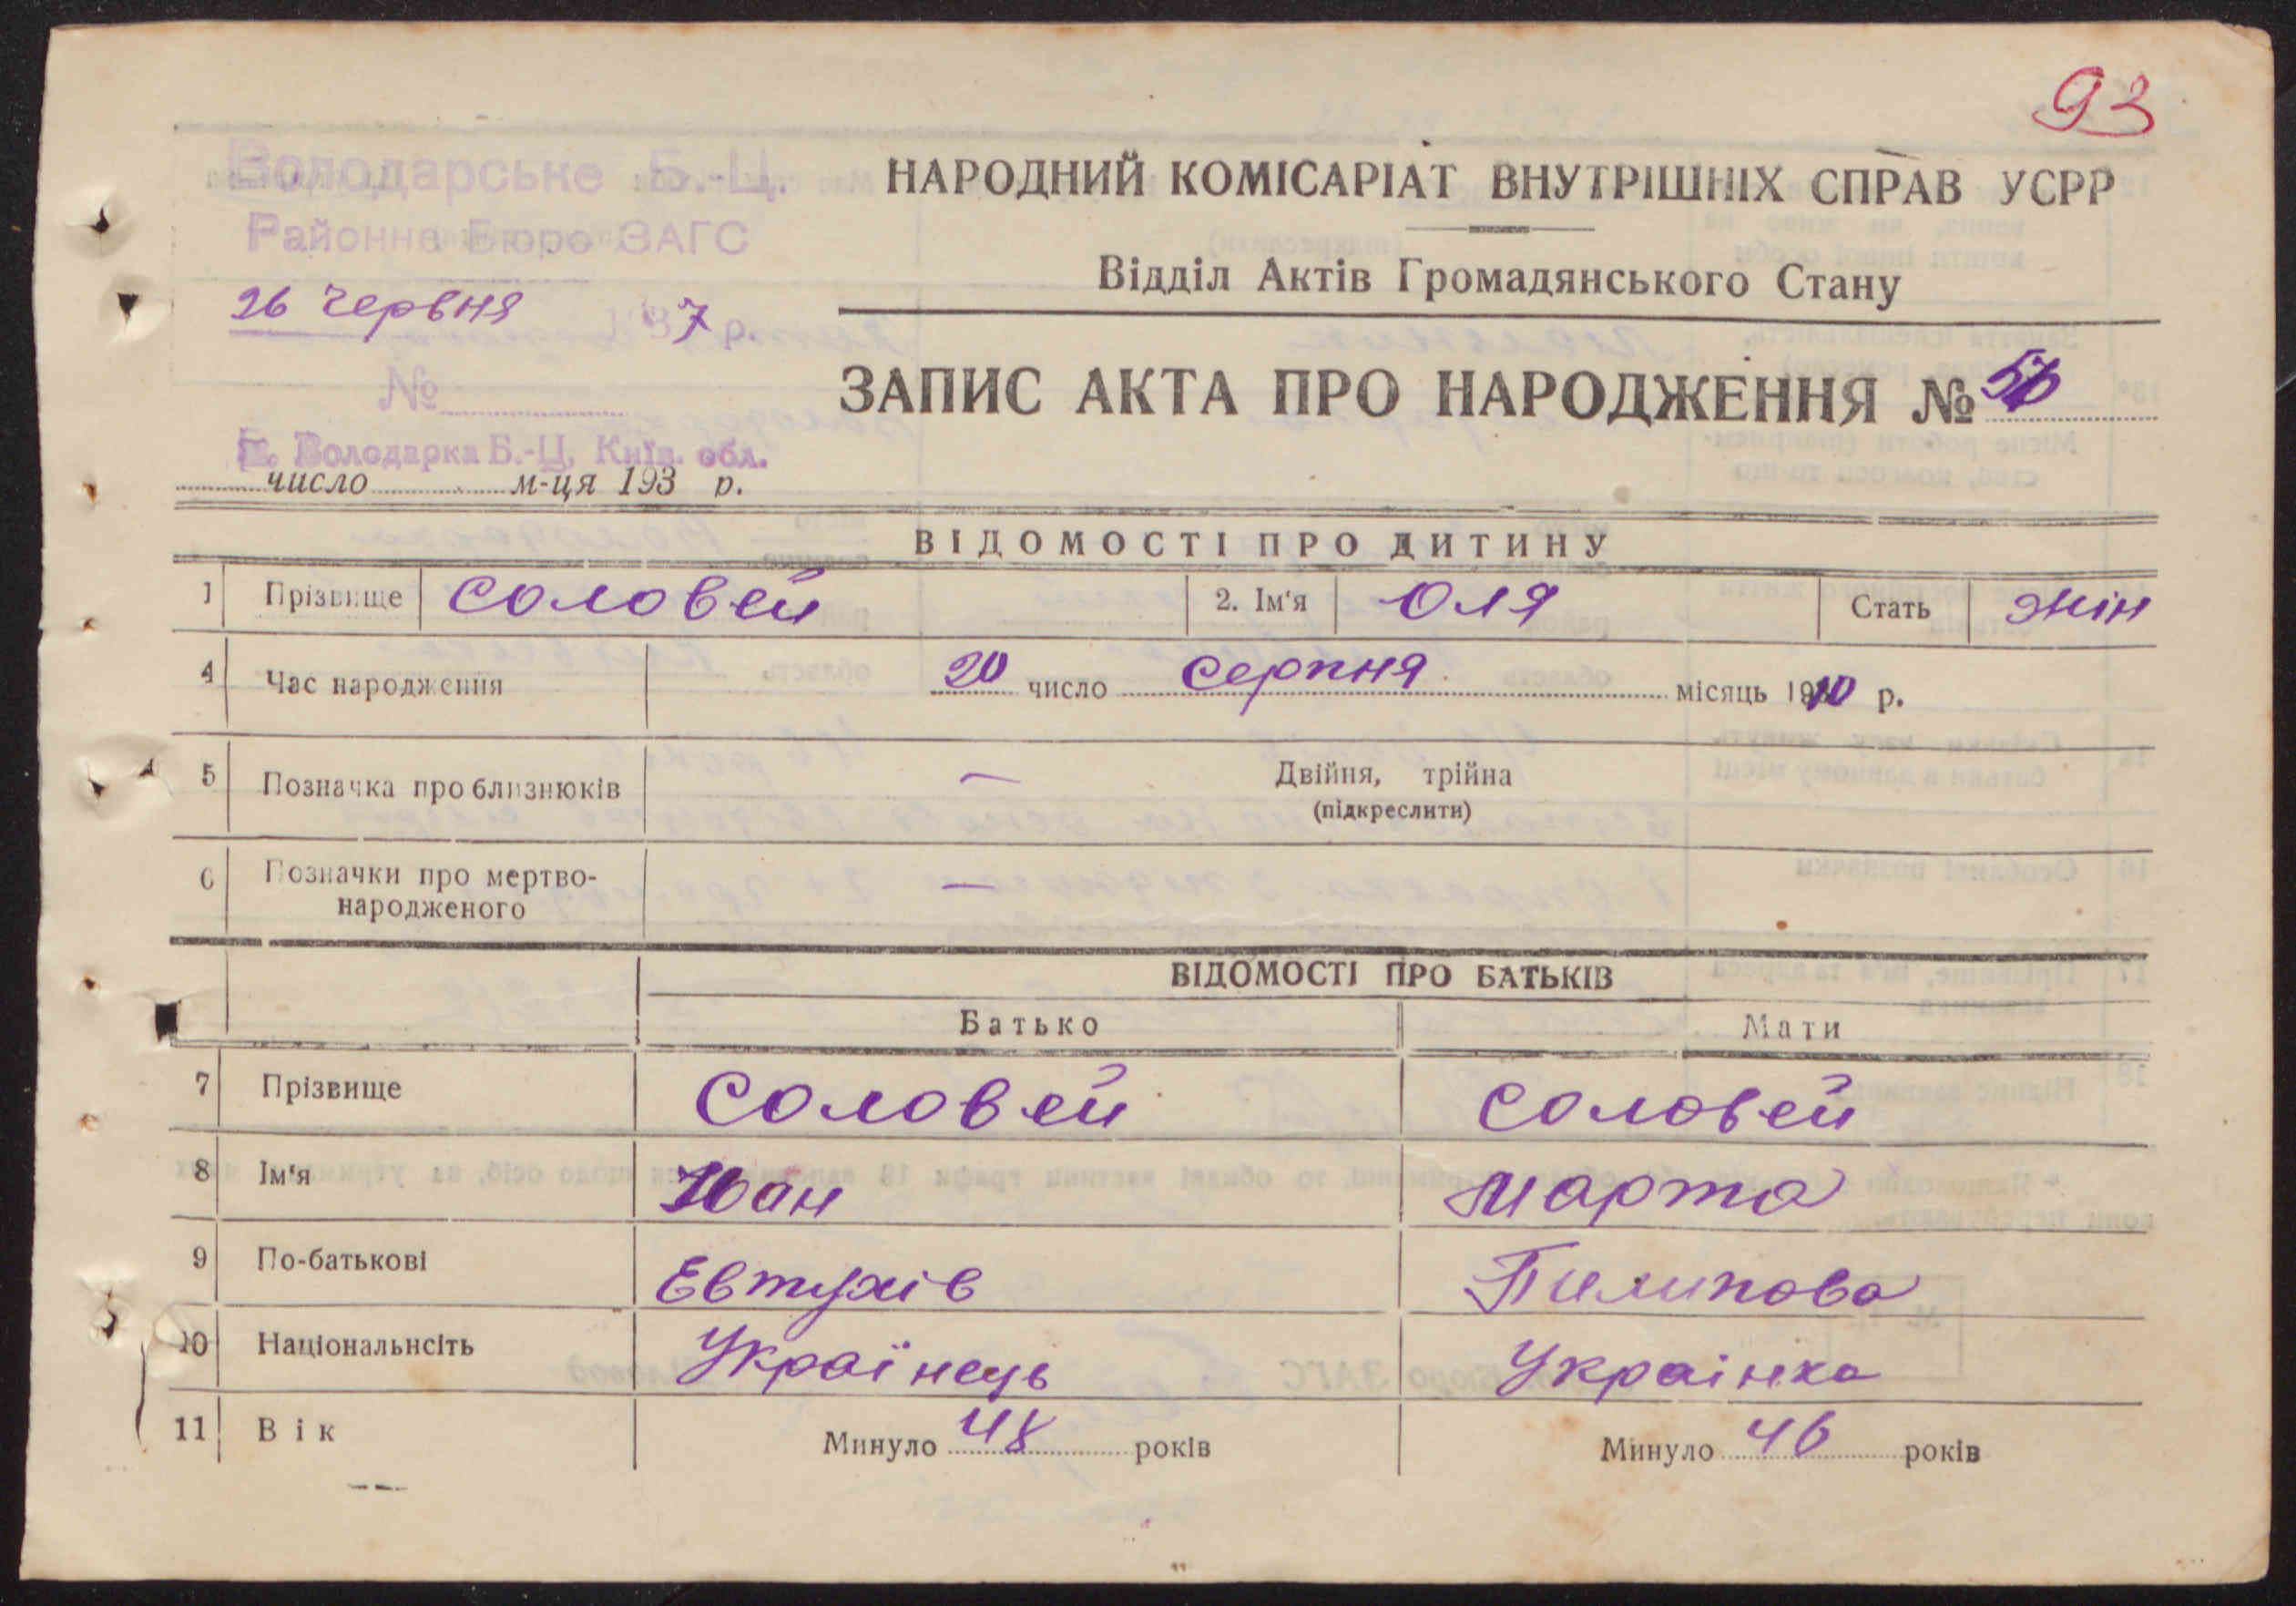 93
Володарське Б.-Ц.
Районне Бюро ЗАГС
26 червня 1937 р.
№
Володарка Б.-Ц. Київ. обл.
число м-ця 193 р.
НАРОДНИЙ КОМІСАРІАТ ВНУТРІШНІХ СПРАВ УСРР
Відділ Актів Громадянського Стану
ЗАПИС АКТА ПРО НАРОДЖЕННЯ №
ВІДОМОСТІ ПРО ДИТИНУ
1 Прізвище Соловей 2. Ім'я Оля Стать жін
4 Час народження 20 число серпня місяць 1910 р.
5 Позначка про близнюків — Двійня, трійна
(підкреслити)
6 Позначки про мертво-
народженого —
ВІДОМОСТІ ПРО БАТЬКІВ
Батько Мати
7 Прізвище Соловей Соловей
8 Ім'я Іван Марта
9 По-батькові Евтухів Пилипова
10 Національнсіть Українець Украінка
11 Вік Минуло 48 років Минуло 46 років